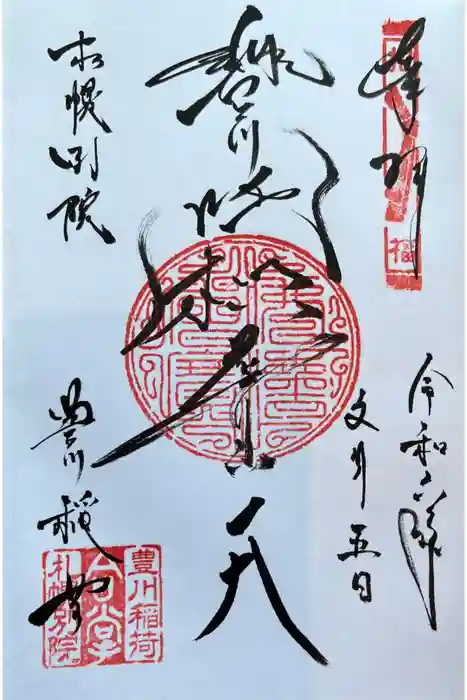 奉拝
令和六年
文月五日
豊川吒枳尼真天
札幌別院
豊川稲荷
豊川稲荷
合掌
札幌別院